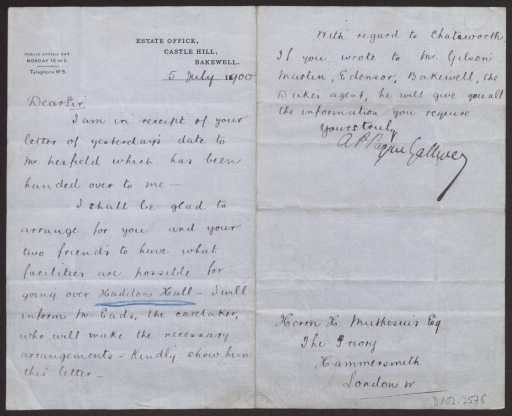 PUBLIC OFFICE DAY
MONDAY 10 to 2.
Telephone No 5.
ESTATE OFFICE,
CASTLE HILL,
BAKEWELL.
5 July 1900
Dear Sir
I am in receipt of your
letter of yesterday's date to
Mr which has been
handed over to me —
I shall be glad to
arrange for you and your
two friends to have what
facilities are possible for
going over Haddon Hall – I will
inform Mr Eads, the caretaker,
who will make the necessary
arrangements – Kindly show him
this letter –
With regard to Chatsworth
If you wrote to Mr. Gilson
Martin, Edensor, Bakewell, the
Dukes agent, he will give you all
the information you require
Yours truly
A P Payne Gallwey
Herrn H. Muthesius Esq
The Priory
Hammersmith
London W
D102-2576